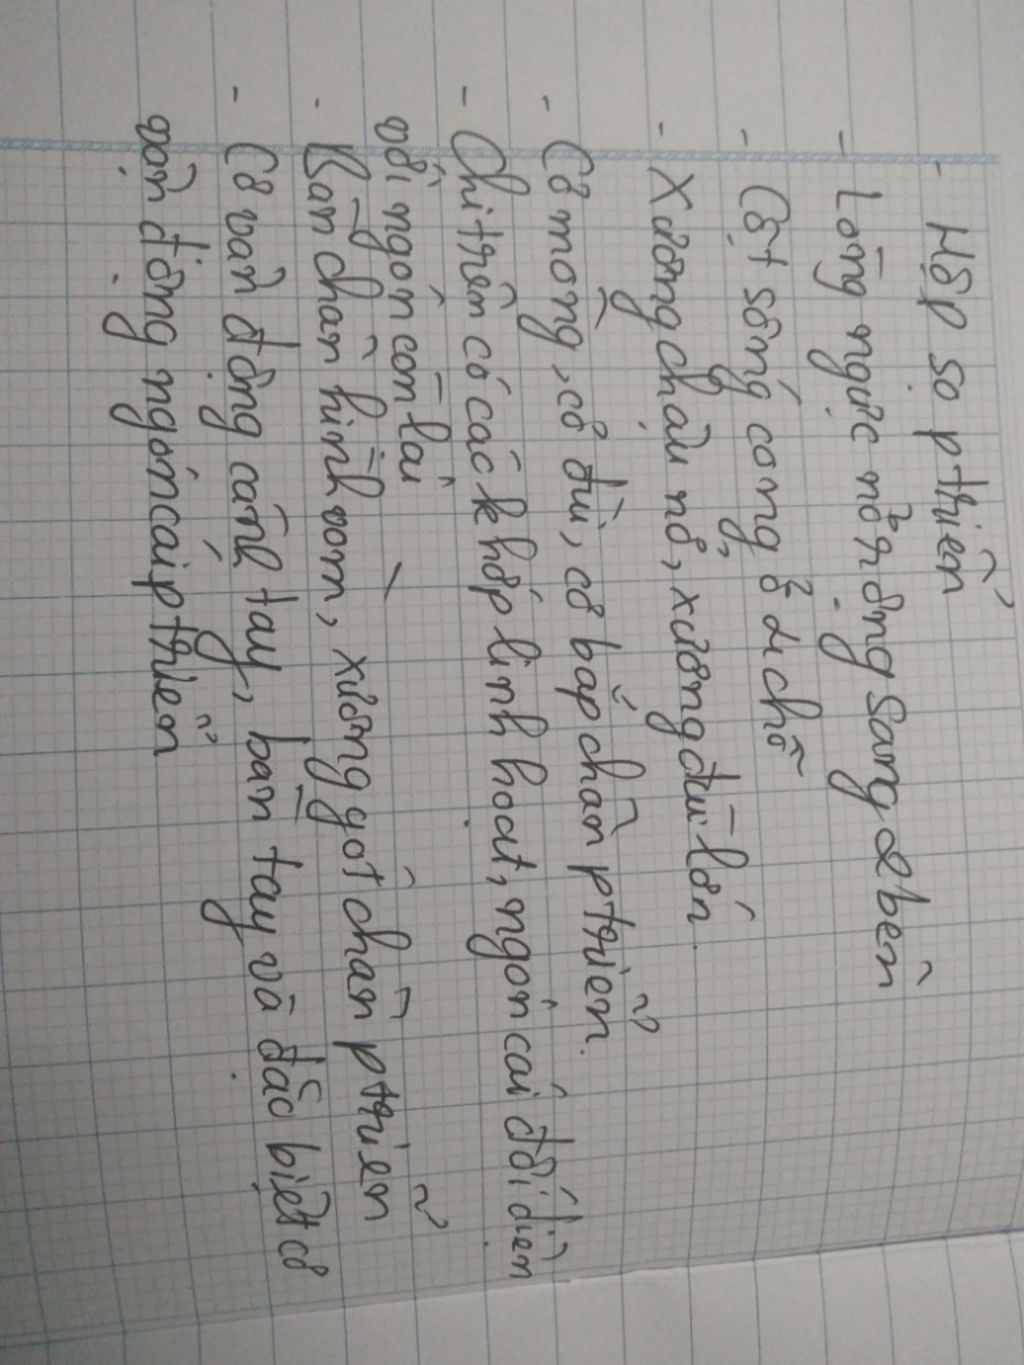 - Hộp sọ ptriển
- Lồng ngực nở rộng sang 2 bên
- Cột sống cong ở 4 chỗ
- Xương chậu nở, xương đùi lớn.
- Cơ mông, cơ đùi, cơ bắp chân ptriển.
- Chi trên có các khớp linh hoạt, ngón cái đối diện
với ngón còn lại
- Bàn chân hình vòm, xương gót chân ptriển
- Cơ vận động cánh tay, bàn tay và đặc biệt cơ
vận động ngón cái ptriển